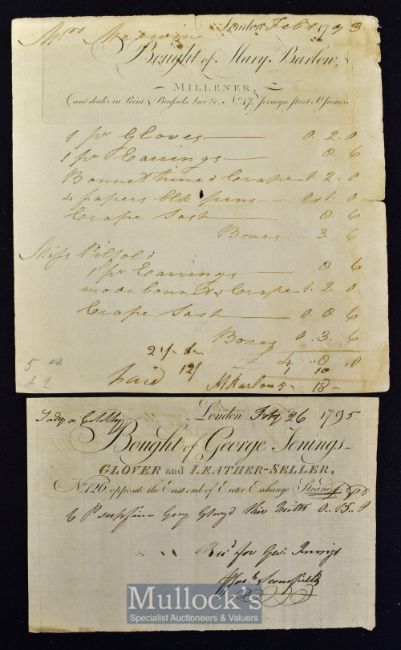 London Feb 1793
Mrs
Bought of Mary Barlow,
MILLENER,
and dealer in Point & Brussels Lace &c. No. 47, Jermyn Street St. James's
1 pr Gloves — 0.2.0
1 pr Earrings — 0 6
Bonnet & Crape 1.2.0
4 papers blk pins — 0.1.0
Crape Sash — 0 6
Boxes — 3.6
Miss
1 pr Earrings — 0 6
mode bonnet & Crape 1.2.0
Crape Sash — 0.0.6
Boxes 0.3.6
paid
M Barlow
London Feby 26 1795
Lady
Bought of George Jenings
GLOVER and LEATHER-SELLER,
No. 126, opposite the East end of Exeter Exchange Strand
6 Pr supfine Gray Mitts 0.15.
Recd for Geo: Jenings
Mullock's
Specialist Auctioneers & Valuers